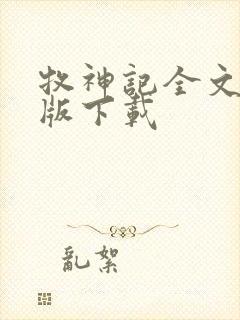 牧神記全文
版下載
亂絮